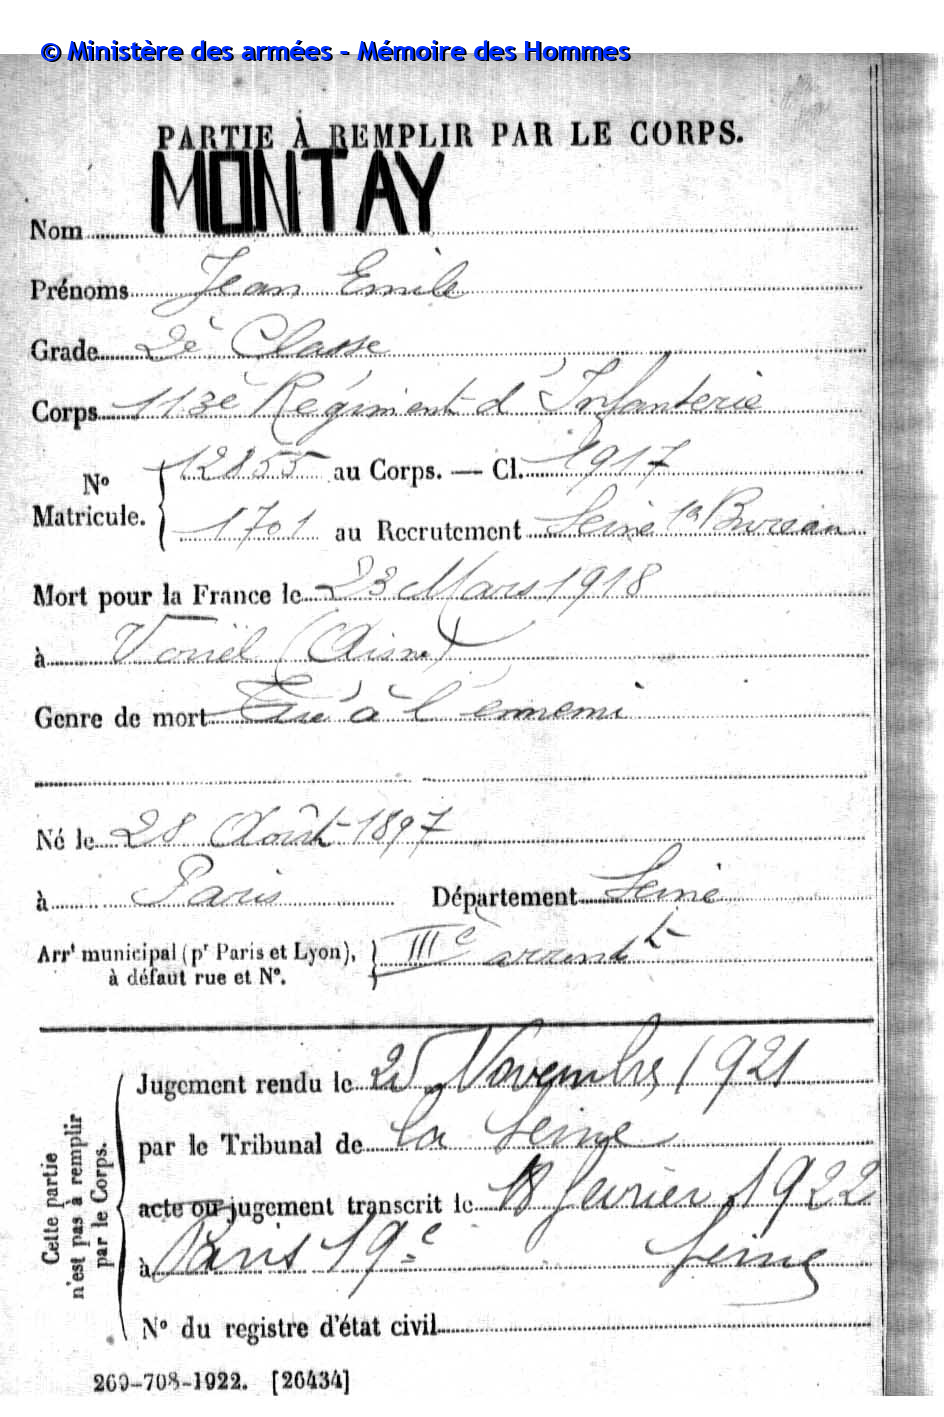 © Ministère des armées - Mémoire des Hommes
PARTIE À REMPLIR PAR LE CORPS.
Nom MONTAY
Prénoms Jean Emile
Grade 2è Classe
Corps 113è Régiment d'Infanterie
N° Matricule. 12855 au Corps. — Cl. 1917
1701 au Recrutement Seine 1r Bureau
Mort pour la France le 23 Mars 1918
à Vouël (Aisne)
Genre de mort Tué à l'ennemi
Né le 28 Août 1897
à Paris Département Seine
Arrt municipal (pr Paris et Lyon), à défaut rue et N°. IIIe arrondt
Cette partie n'est pas à remplir par le Corps.
Jugement rendu le 25 Novembre 1921
par le Tribunal de la Seine
acte ou jugement transcrit le 18 février 1922
à Paris 19e Seine
N° du registre d'état civil
269-708-1922. [26434]